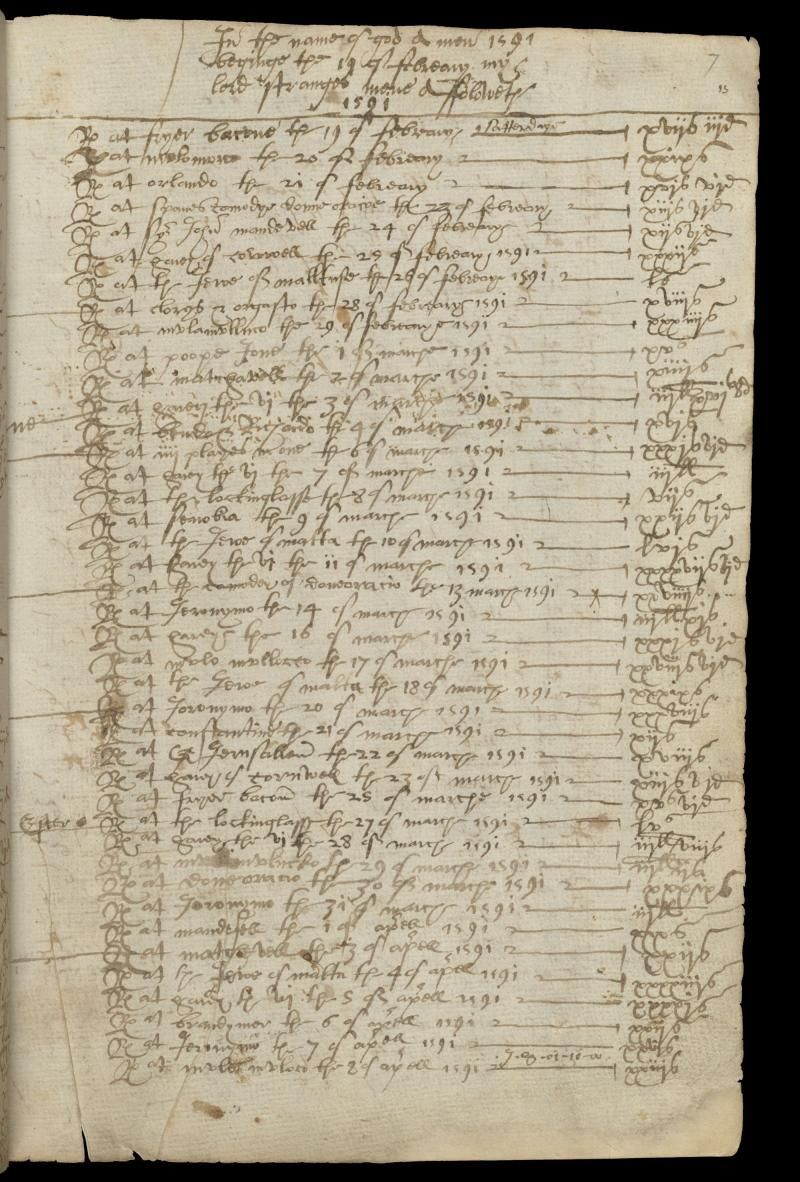 In the name of god A men 1591
beginge the 19 of febreary my
lord stranges mene A ffoloweth
1591
7
15
Rd at fryer bacone the 19 of febreary satterdaye xvijs iijd
Rd at mvlomorco the 20 of febreary xxixs
Rd at orlando the 21 of febreary xvjs vjd
Rd at spanes comodye donne oracioe the 23 of febreary xiijs vjd
Rd at syr John mandevell the 24 of febreary xijs vjd
Rd at harey of cornwell the 25 of febreary 1591 xxxijs
Rd at the Jewe of malltuse the 26 of febreary 1591 ls
Rd at clorys & orgasto the 28 of febreary 1591 xviijs
Rd at mvlamvlluco the 29 of febreary 1591 xxxiiijs
Rd at poope Jone the 1 of marche 1591 xvs
Rd at matchavell the 2 of marche 1591 xiiijs
ne Rd at harey the vj the 3 of marche 1591 iijll xvjs 8d
Rd at bendo & Richardo the 4 of marche 1591 xvjs
Rd at iiij playes in one the 6 of marche 1591 xxxjs vjd
Rd at harey the vj the 7 of marche 1591 iijll
Rd at the lockinglasse the 8 of marche 1591 vijs
Rd at senobia the 9 of marche 1591 xxijs vjd
Rd at the Jewe of malta the 10 of marche 1591 lvjs
Rd at harey the vj the 11 of marche 1591 xxxxvijs vjd
Rd at the comodey of doneoracio the 13 march 1591 xxviiijs
Rd at Jeronymo the 14 of march 1591 iijll xjs
Rd at harey the 16 of marche 1591 xxxjs vjd
Rd at mvlo mvllocco the 17 of marche 1591 xxviijs vjd
Rd at the Jewe of malta the 18 of march 1591 xxxixs
Rd at Joronymo the 20 of march 1591 xxxviijs
Rd at constantine the 21 of marche 1591 xijs
Rd at Jerusallem the 22 of marche 1591 xviijs
Rd at harey of cornwell the 23 of march 1591 xiijs vjd
Rd at fryer bacon the 25 of marche 1591 xvs vjd
Ester Rd at the lockinglasse the 27 of march 1591 lvs
Rd at harey the vj the 28 of march 1591 iijll viijs
Rd at mvlomvlucko the 29 of march 1591 iijll ijs
Rd at doneoracio the 30 of march 1591 xxxixs
Rd at Jeronymo the 31 of march 1591 iijll
Rd at mandefell the 1 of aprell 1591 xxxs
Rd at matchevell the 3 of aprell 1591 xxijs
Rd at the Jewe of malta the 4 of aprell 1591 xxxxiijs
Rd at harey the vj the 5 of aprell 1591 xxxxjs
Rd at brandymer the 6 of aprell 1591 xxijs
Rd at Jeronymo the 7 of aprell 1591 xxvjs
Rd at mvle mvloco the 8 of aprell 1591 xxiijs